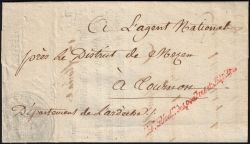 A L'agent National
près le District de Mezen
à Tournon
Département de Lardeche